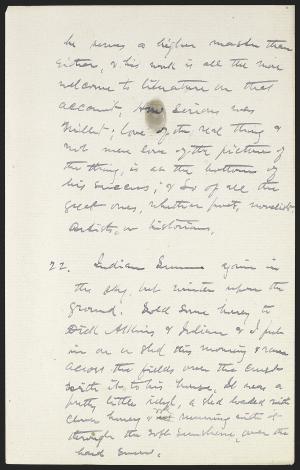 he serves a higher master than
either, & his work is all the more
welcome to literature on that
account. How serious was
Millet; love of the real thing &
not mere love of the picture of
the thing, is at the bottom of
his success; & so of all the
great ones, whether poets, novelists
artists, or historians.
22. Indian Summer again in
the sky, but winter upon the
ground. Sold some honey to
Dick Atkins & Julian & I put
in on a sled this morning &
across the fields over the crust
with it to his house. It was a
pretty little idyl, a sled loaded with
clover honey & running with it
through the soft sunshine, over the
hard snow.